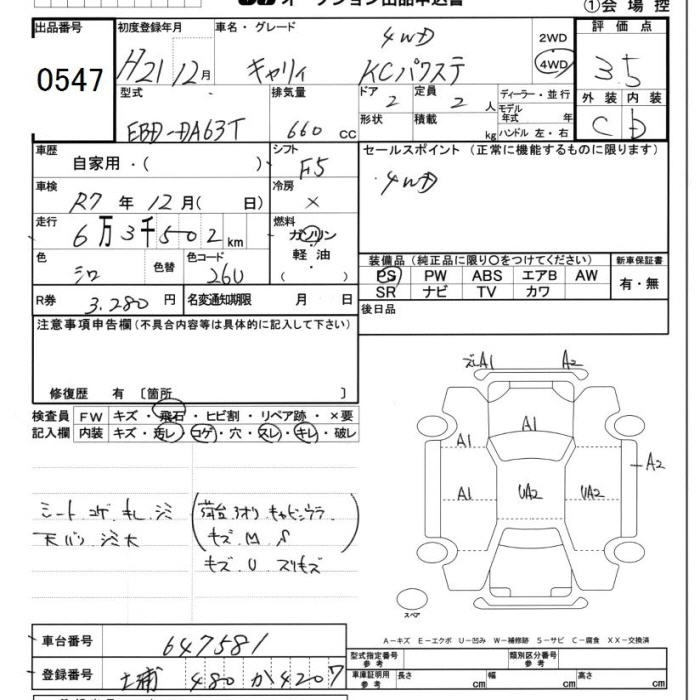 オークション出品申込書
①会場控
出品番号 初度登録年月 車名・グレード 評価点
0547 H21 12月 キャリイ 4WD KCパワステ 2WD 4WD 3.5
型式 排気量 ドア 定員 ディーラー・並行 外装 内装
EBD-DA63T 660cc 2 2人 モデル年式 年 C D
形状 積載 kg ハンドル 左・右
車歴 シフト セールスポイント(正常に機能するものに限ります)
自家用・( ) F5
4WD
車検 冷房
R7年 12月( 日) ×
走行 燃料
6万3千502km ガソリン
軽油
( )
色 色替 色コード
シロ 26U
装備品(純正品に限り○をつけてください) 新車保証書
PS PW ABS エアB AW 有・無
SR ナビ TV カワ
R券 3,280円 名変通知期限 月 日
後日品
注意事項申告欄(不具合内容等は具体的に記入して下さい)
修復歴 有〔箇所 〕
検査員 FW キズ・飛石・ヒビ割・リペア跡・×要
記入欄 内装 キズ・汚レ・コゲ・穴・スレ・キレ・破レ
シート コゲ キレ シミ
天バリ シミ大
荷台 アオリ キャビンウラ
キズ M S
キズ U スリキズ
ズレA1 A2
A1
A1
A2
A1 UA2 UA2
スペア
A-キズ E-エクボ U-凹み W-補修跡 S-サビ C-腐食 XX-交換済
車台番号 647581
型式指定番号 参考 類別区分番号 参考
登録番号 土浦 480 か 4207
車庫証明用 参考 長さ cm 幅 cm 高さ cm